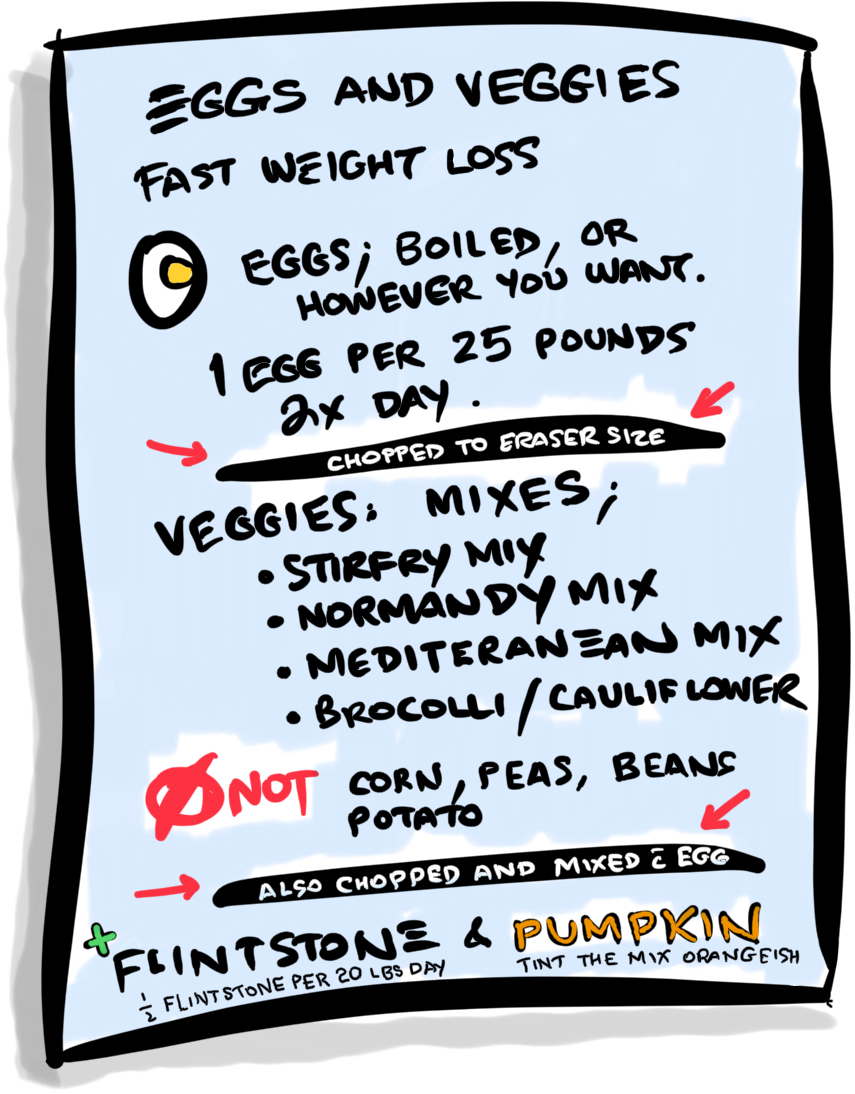 EGGS AND VEGGIES
FAST WEIGHT LOSS
EGGS; BOILED, OR
HOWEVER YOU WANT.
1 EGG PER 25 POUNDS
2X DAY.
CHOPPED TO ERASER SIZE
VEGGIES: MIXES;
• STIRFRY MIX
• NORMANDY MIX
• MEDITERANEAN MIX
• BROCOLLI / CAULIFLOWER
NOT CORN, PEAS, BEANS
POTATO
ALSO CHOPPED AND MIXED c̄ EGG
+ FLINTSTONE & PUMPKIN
½ FLINTSTONE PER 20 LBS DAY
TINT THE MIX ORANGEISH